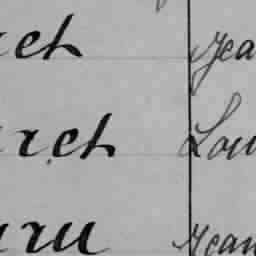 ret Jea
uret Lou
uru Jean